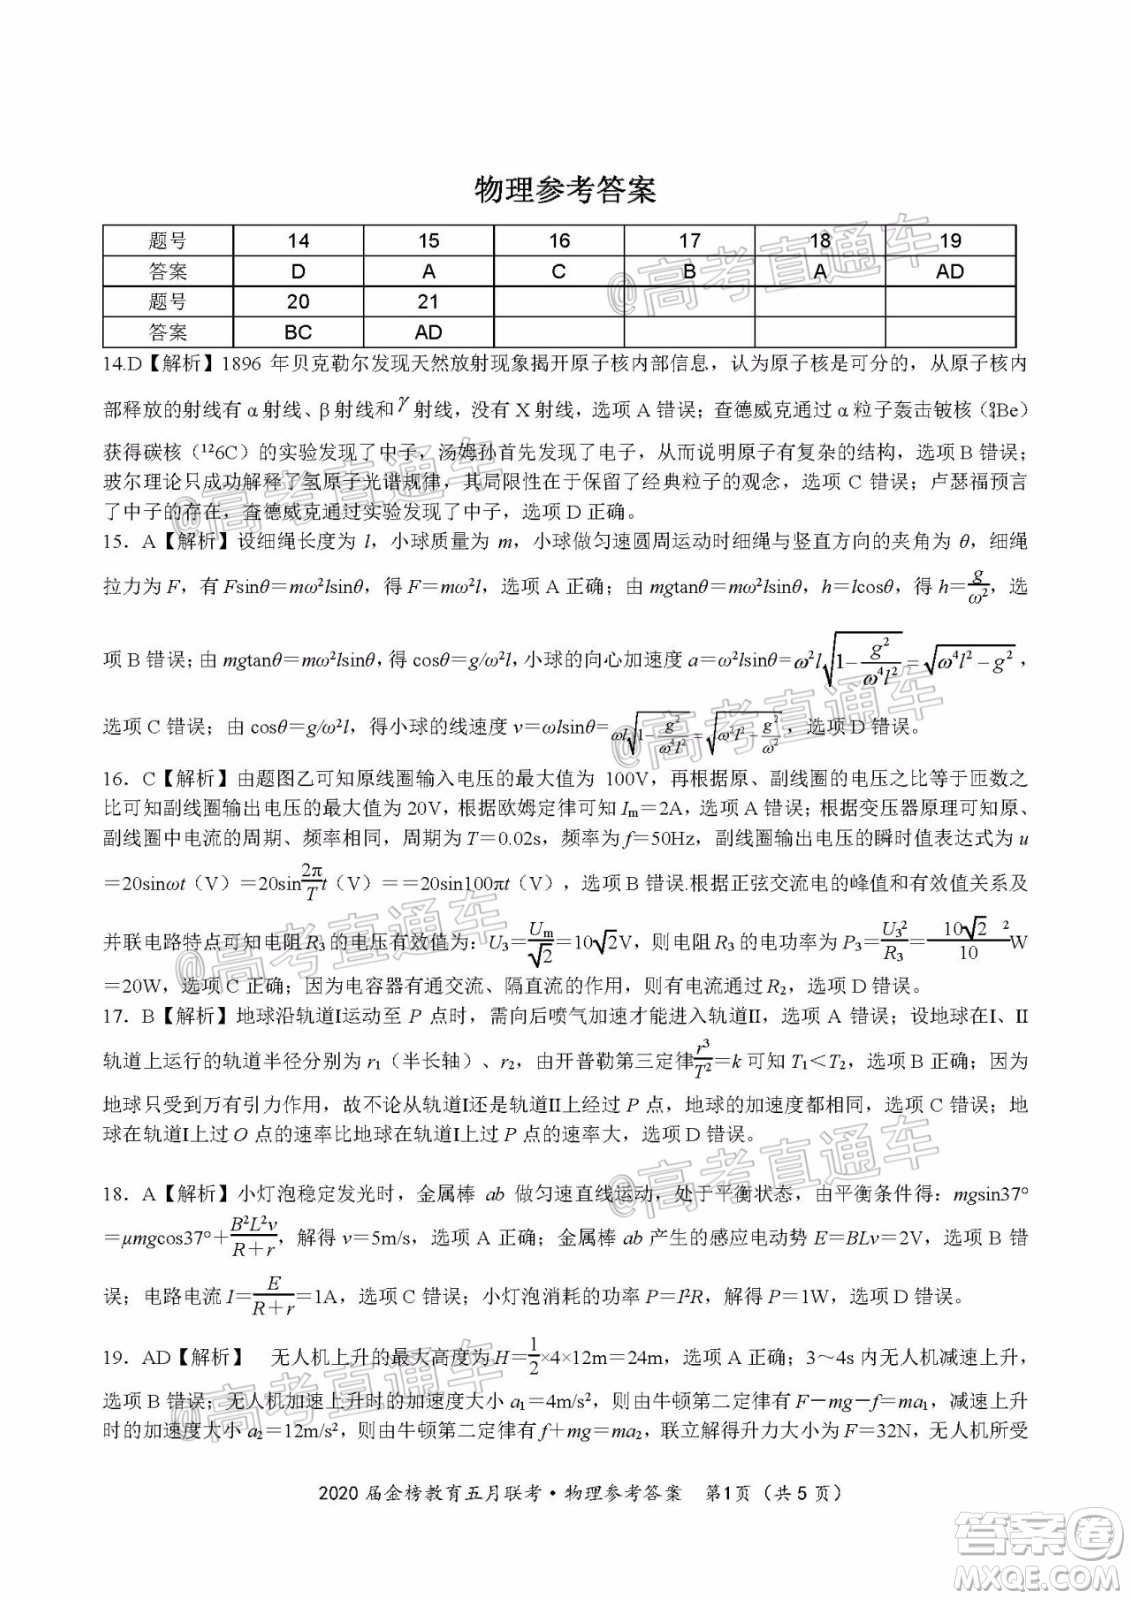 物理参考答案
题号 14 15 16 17 18 19
答案 D A C B A AD
题号 20 21
答案 BC AD
14.D【解析】1896 年贝克勒尔发现天然放射现象揭开原子核内部信息，认为原子核是可分的，从原子核内
部释放的射线有 α 射线、β 射线和 γ 射线，没有 X 射线，选项 A 错误；查德威克通过 α 粒子轰击铍核（⁹₄Be）
获得碳核（¹²6C）的实验发现了中子，汤姆孙首先发现了电子，从而说明原子有复杂的结构，选项 B 错误；
玻尔理论只成功解释了氢原子光谱规律，其局限性在于保留了经典粒子的观念，选项 C 错误；卢瑟福预言
了中子的存在，查德威克通过实验发现了中子，选项 D 正确。
15．A【解析】设细绳长度为 l，小球质量为 m，小球做匀速圆周运动时细绳与竖直方向的夹角为 θ，细绳
拉力为 F，有 Fsinθ＝mω²lsinθ，得 F＝mω²l，选项 A 正确；由 mgtanθ＝mω²lsinθ，h＝lcosθ，得 h＝g/ω²，选
项 B 错误；由 mgtanθ＝mω²lsinθ，得 cosθ＝g/ω²l，小球的向心加速度 a＝ω²lsinθ＝ω²l√(1−g²/(ω⁴l²))＝√(ω⁴l²−g²)，
选项 C 错误；由 cosθ＝g/ω²l，得小球的线速度 v＝ωlsinθ＝ωl√(1−g²/(ω⁴l²))＝√(ω²l²−g²/ω²)，选项 D 错误。
16．C【解析】由题图乙可知原线圈输入电压的最大值为 100V，再根据原、副线圈的电压之比等于匝数之
比可知副线圈输出电压的最大值为 20V，根据欧姆定律可知 Iₘ＝2A，选项 A 错误；根据变压器原理可知原、
副线圈中电流的周期、频率相同，周期为 T＝0.02s，频率为 f＝50Hz，副线圈输出电压的瞬时值表达式为 u
＝20sinωt（V）＝20sin(2π/T)t（V）＝＝20sin100πt（V），选项 B 错误.根据正弦交流电的峰值和有效值关系及
并联电路特点可知电阻 R₃ 的电压有效值为：U₃＝Uₘ/√2＝10√2V，则电阻 R₃ 的电功率为 P₃＝U₃²/R₃＝10√2 ²/10 W
＝20W，选项 C 正确；因为电容器有通交流、隔直流的作用，则有电流通过 R₂，选项 D 错误。
17．B【解析】地球沿轨道Ⅰ运动至 P 点时，需向后喷气加速才能进入轨道Ⅱ，选项 A 错误；设地球在Ⅰ、Ⅱ
轨道上运行的轨道半径分别为 r₁（半长轴）、r₂，由开普勒第三定律r³/T²＝k 可知 T₁＜T₂，选项 B 正确；因为
地球只受到万有引力作用，故不论从轨道Ⅰ还是轨道Ⅱ上经过 P 点，地球的加速度都相同，选项 C 错误；地
球在轨道Ⅰ上过 O 点的速率比地球在轨道Ⅰ上过 P 点的速率大，选项 D 错误。
18．A【解析】小灯泡稳定发光时，金属棒 ab 做匀速直线运动，处于平衡状态，由平衡条件得：mgsin37°
＝μmgcos37°＋B²L²v/(R＋r)，解得 v＝5m/s，选项 A 正确；金属棒 ab 产生的感应电动势 E＝BLv＝2V，选项 B 错
误；电路电流 I＝E/(R＋r)＝1A，选项 C 错误；小灯泡消耗的功率 P＝I²R，解得 P＝1W，选项 D 错误。
19．AD【解析】 无人机上升的最大高度为 H＝1/2×4×12m＝24m，选项 A 正确；3～4s 内无人机减速上升，
选项 B 错误；无人机加速上升时的加速度大小 a₁＝4m/s²，则由牛顿第二定律有 F－mg－f＝ma₁，减速上升
时的加速度大小 a₂＝12m/s²，则由牛顿第二定律有 f＋mg＝ma₂，联立解得升力大小为 F＝32N，无人机所受
2020 届金榜教育五月联考·物理参考答案 第1页（共 5 页）
@高考直通车
@高考直通车
@高考直通车
@高考直通车
@高考直通车
@高考直通车
答案卷
MXQE.COM